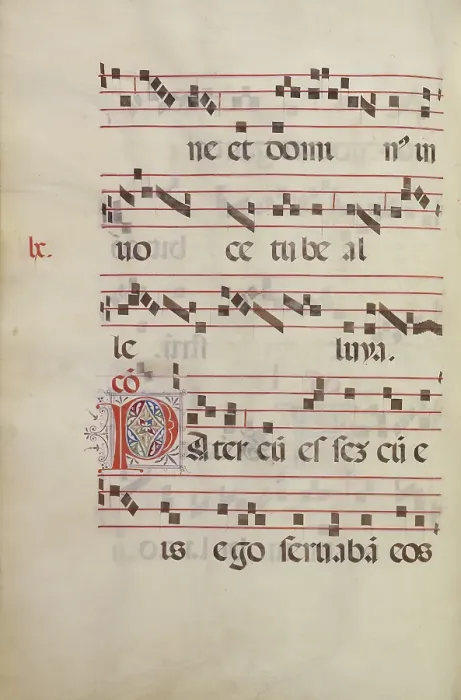 ne et domi nꝰ in
lx. uo ce tu be al
le luya.
cō
Pater cū eſſeʒ cū e
is ego ſeruabā eos